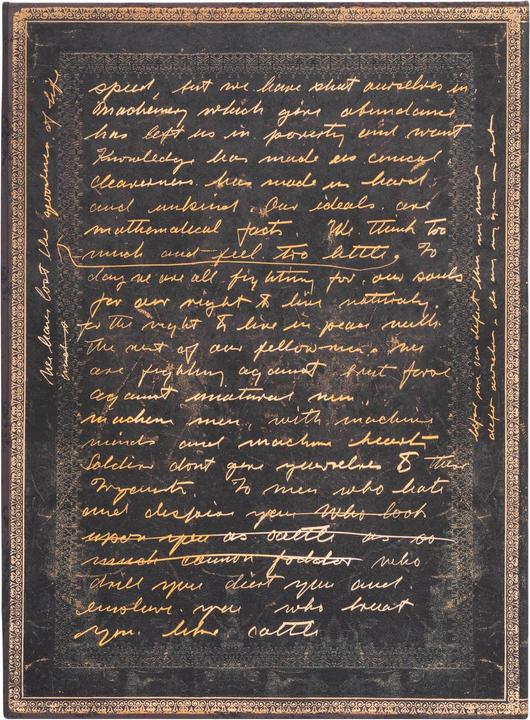 speed, but we have shut ourselves in
machenery which give abundance
has left us in poverty and want
Knowledge has made us cynical
cleaverness has made us hard
and unkind. Our ideals are
mathematical facts We think too
much and feel too little. To
day we are all fighting for our souls
for our right to live naturaly.
for the right to live in peace with
the rest of our fellow-men.
are fighting against brut force
against unatural men
machen men, with machine
minds and machine hearts
Soldiers dont give yourselves to these
To men who hate
and despise you who look
upon you as cattle as so
much cannon foddor who
drill you diet you and
enslave you who treat
you like cattle
We have lost the goodness of life